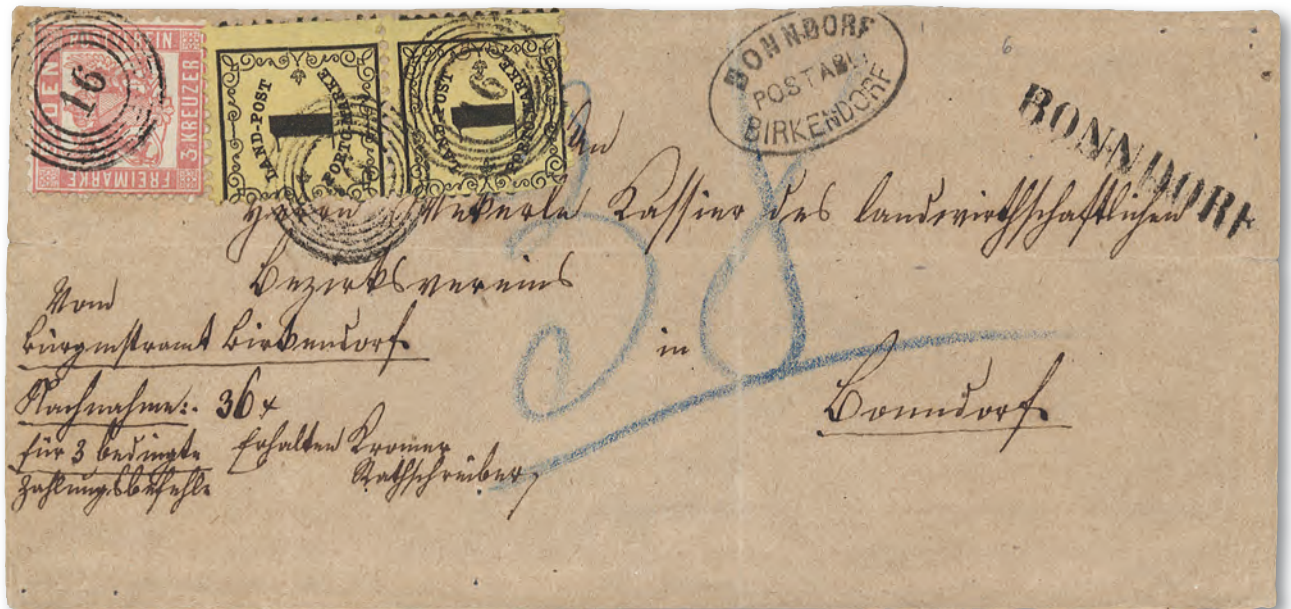 BADEN
POSTVEREIN.
3 KREUZER
FREIMARKE
16
LAND-POST
1
PORTO-MARKE
LAND-POST
1
PORTO-MARKE
16
BONNDORF
POSTABL.
BIRKENDORF
6
BONNDORF
An
Herrn Kassier des landwirthschaftlichen
Bezirksvereins
in
Bonndorf
38
Vom
Bürgermstramt Birkendorf
Nachnahme: 36 x
für 3 bedingte
Zahlungsbefehle
Erhalten Kromer
Rathschreiber